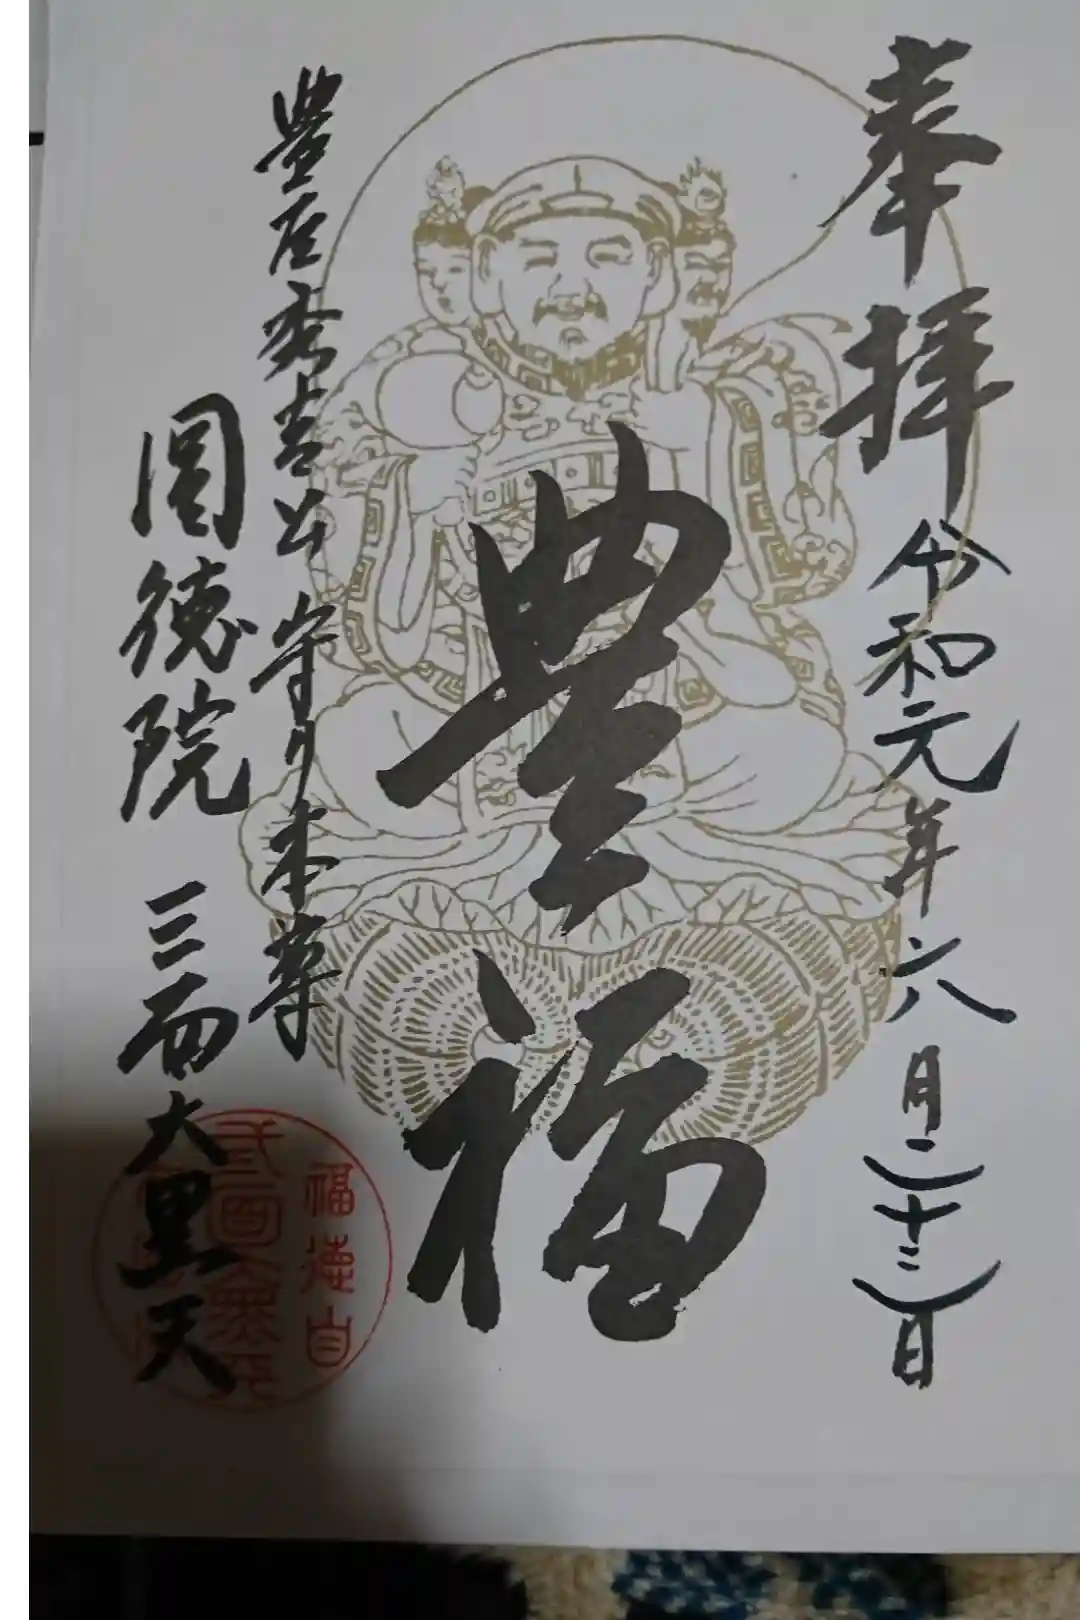 奉拝 令和元年六月二十三日
豊福
豊臣秀吉公 守り本尊
圓徳院 三面大黒天